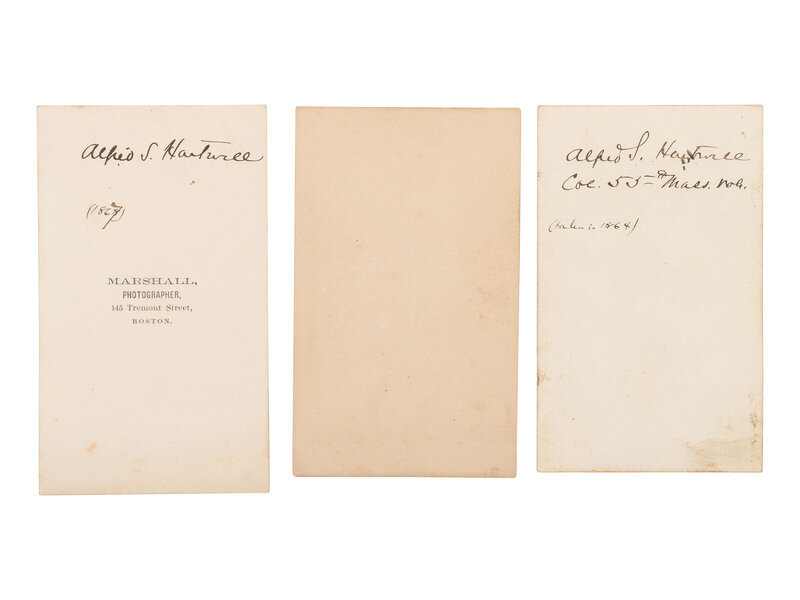 Alfred S. Hartwell
(1867)
MARSHALL,
PHOTOGRAPHER,
145 Tremont Street,
BOSTON.
Alfred S. Hartwell
Col. 55th Mass. vols.
(taken in 1864)